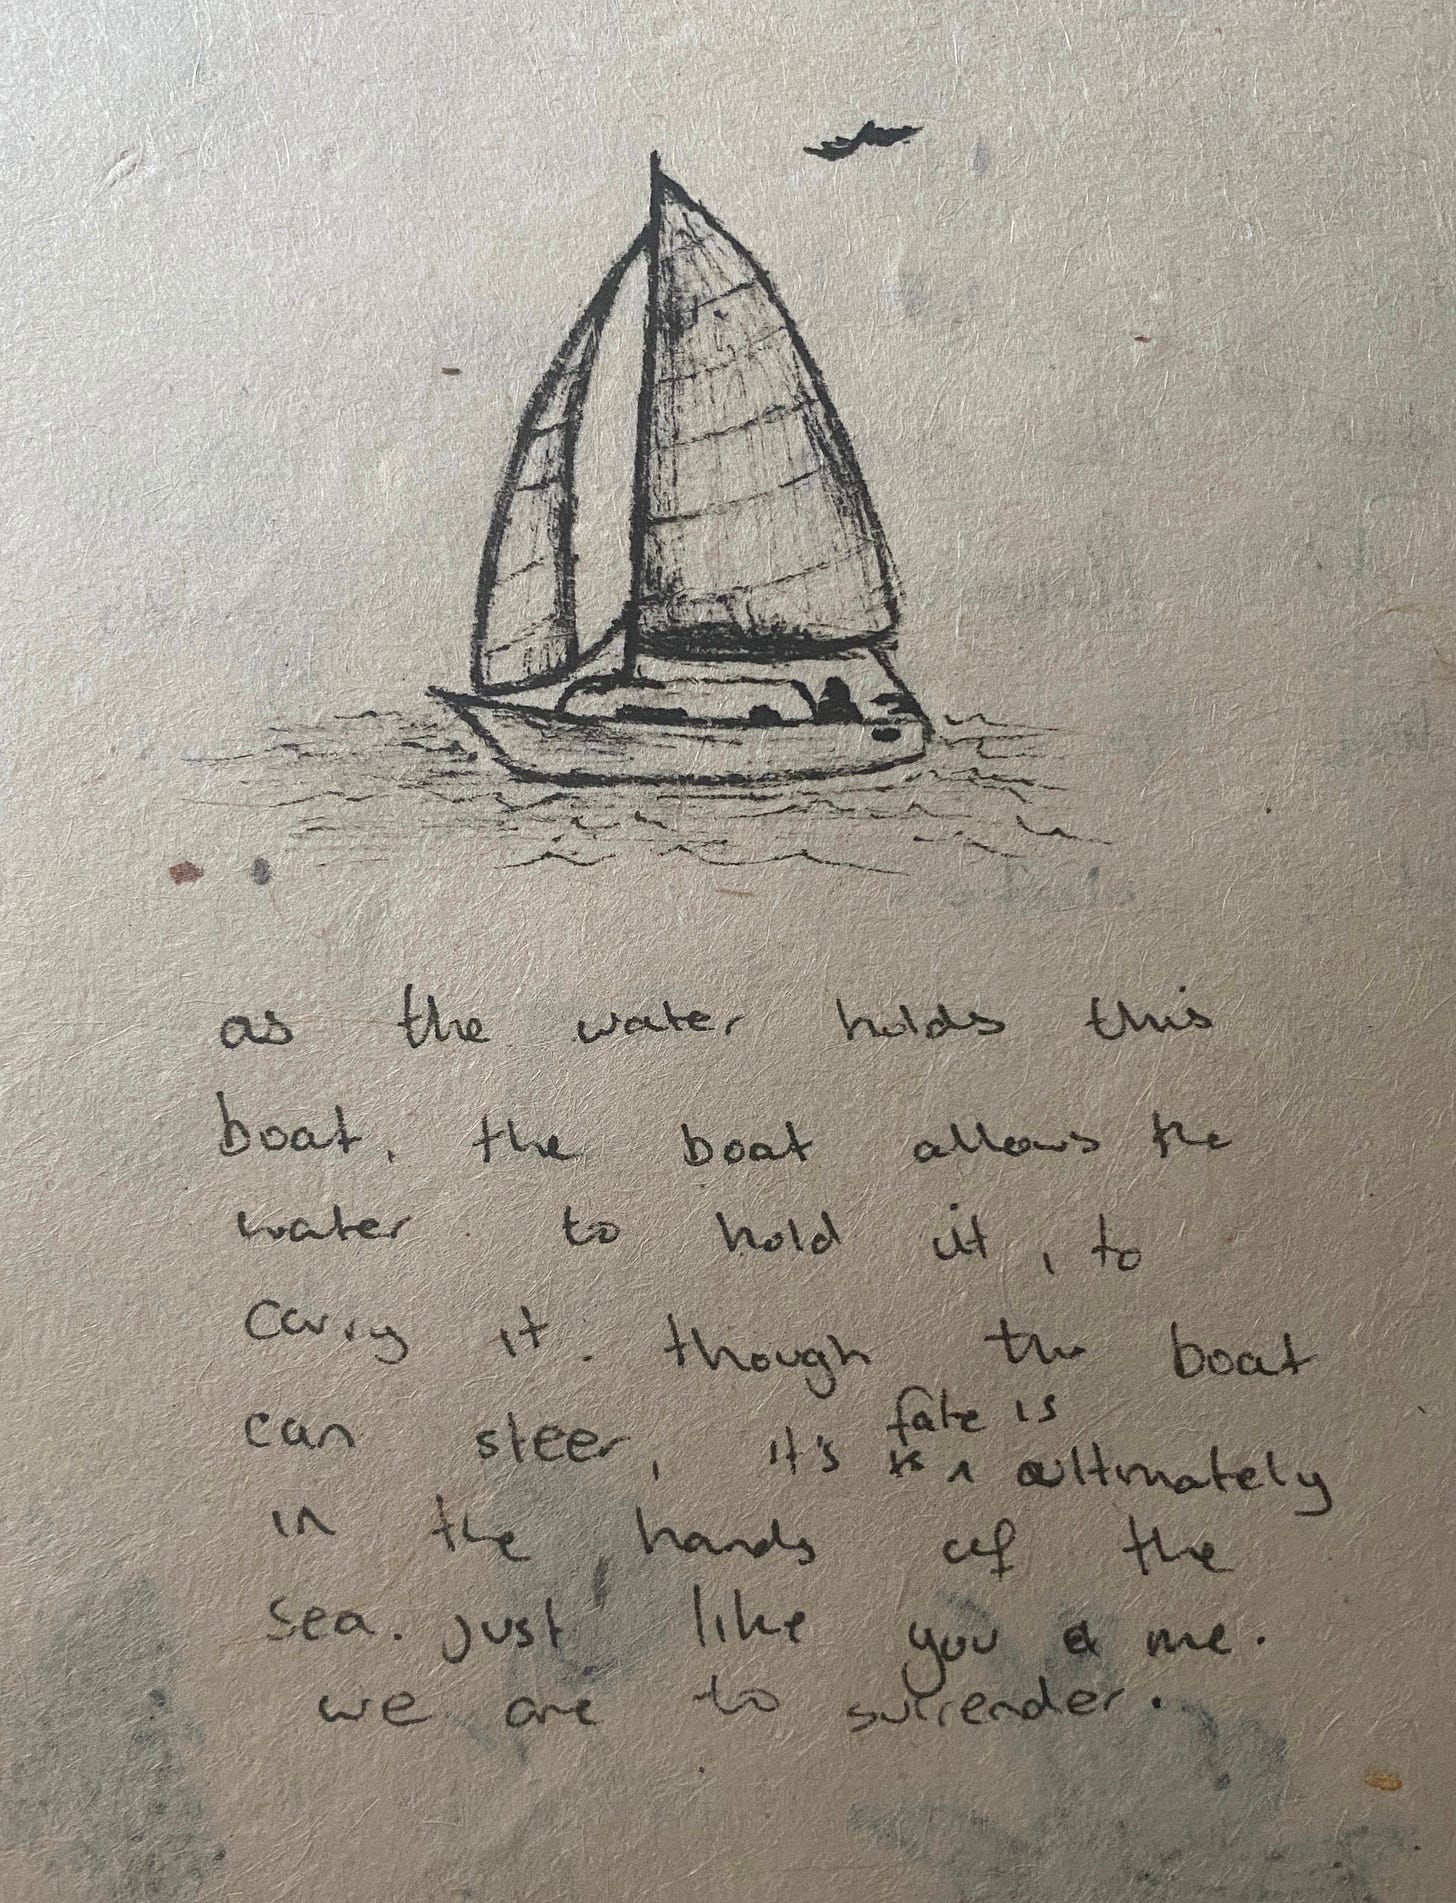 as the water holds this
boat, the boat allows the
water to hold it, to
carry it. though the boat
can steer, it's fate is ultimately
in the hands of the
sea. just like you & me.
we are to surrender.